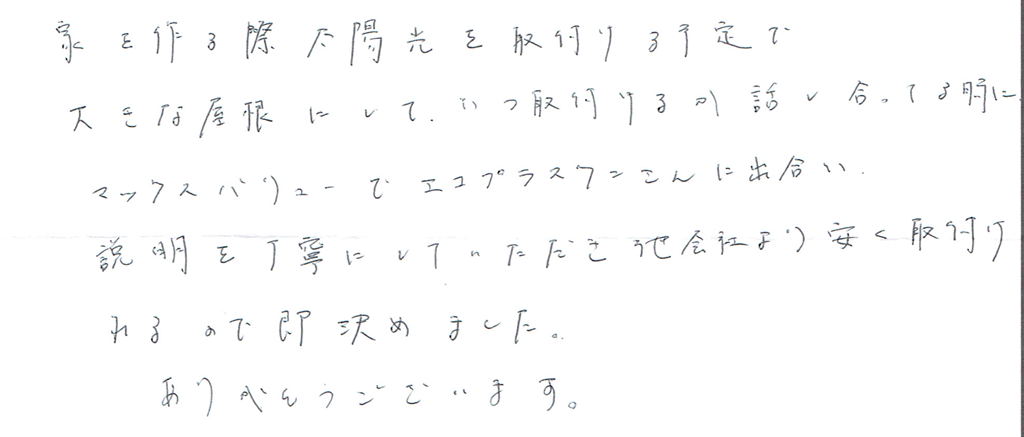 家を作る際太陽光を取付ける予定で
大きな屋根にして、いつ取付けるか話し合ってる時に
マックスバリューでエコプラスワンさんに出合い、
説明を丁寧にしていただき他会社より安く取付け
れるので即決めました。
ありがとうございます。